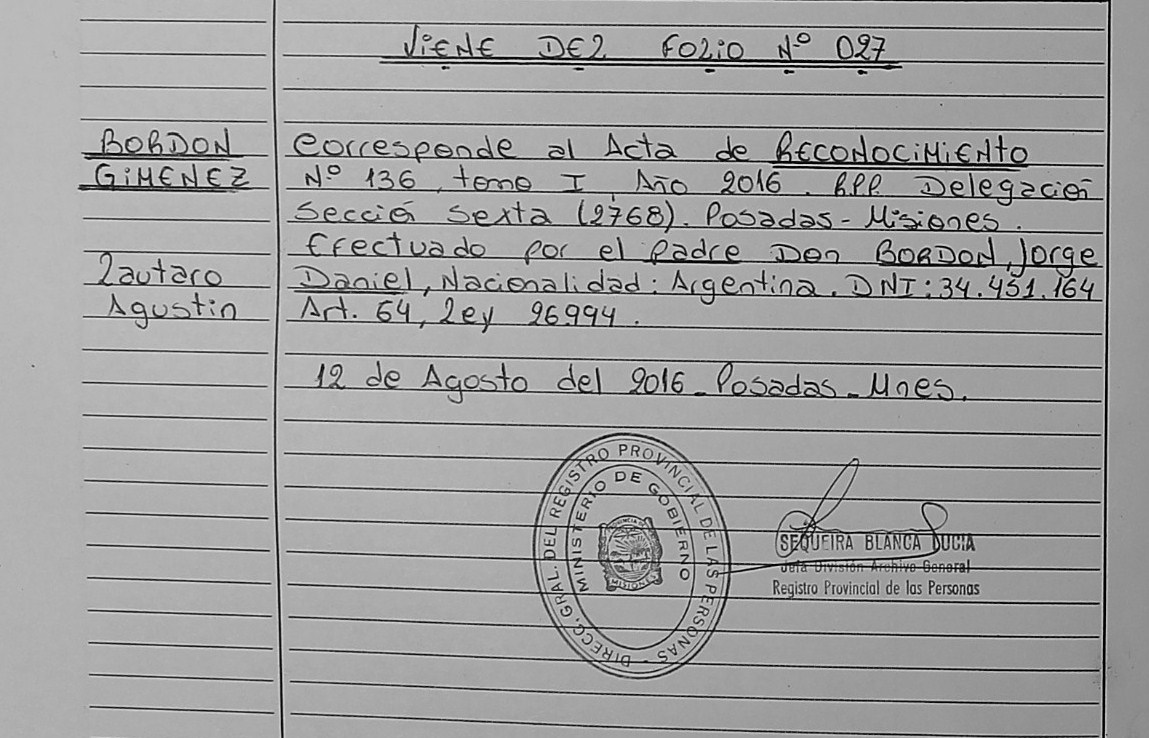 VIENE DEL FOLIO Nº 027
BORDON
GIMENEZ
Lautaro
Agustin
Corresponde al Acta de RECONOCIMIENTO
Nº 136, tomo I, Año 2016. R.P.P. Delegación
Sección Sexta (2768). Posadas - Misiones.
Efectuado por el padre Don BORDON, Jorge
Daniel, Nacionalidad: Argentina. DNI: 34.451.164
Art. 64, Ley 26994.
12 de Agosto del 2016 - Posadas - Mnes.
DIRECC. GRAL. DEL REGISTRO PROVINCIAL DE LAS PERSONAS -
MINISTERIO DE GOBIERNO
MISIONES
SEQUEIRA BLANCA LUCIA
Jefa División Archivo General
Registro Provincial de las Personas